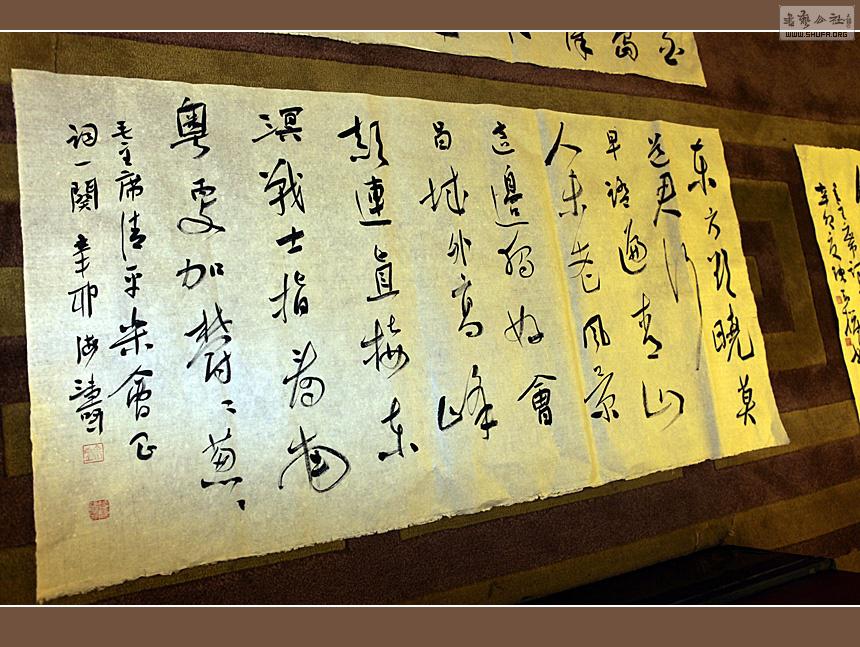 东方欲曉莫
道君行
早踏遍青山
人未老风景
這邊獨好會
昌城外高峰
颠連直接东
溟戰士指看南
粤更加郁〻葱〻
毛主席清平乐會昌
词一闋 辛卯 海濤
書藝公社
WWW.SHUFA.ORG